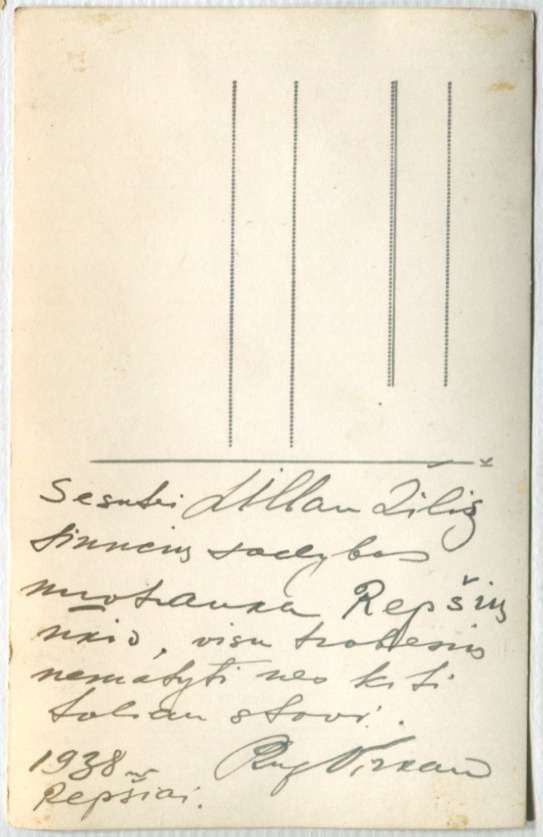 Sesutei Lillan Zilis
siunčiu sodybos
nuotrauka Repšių
ūkio, visu trobesių
nematyti nes kiti
toliau stovi.
1938 m
Repšiai.